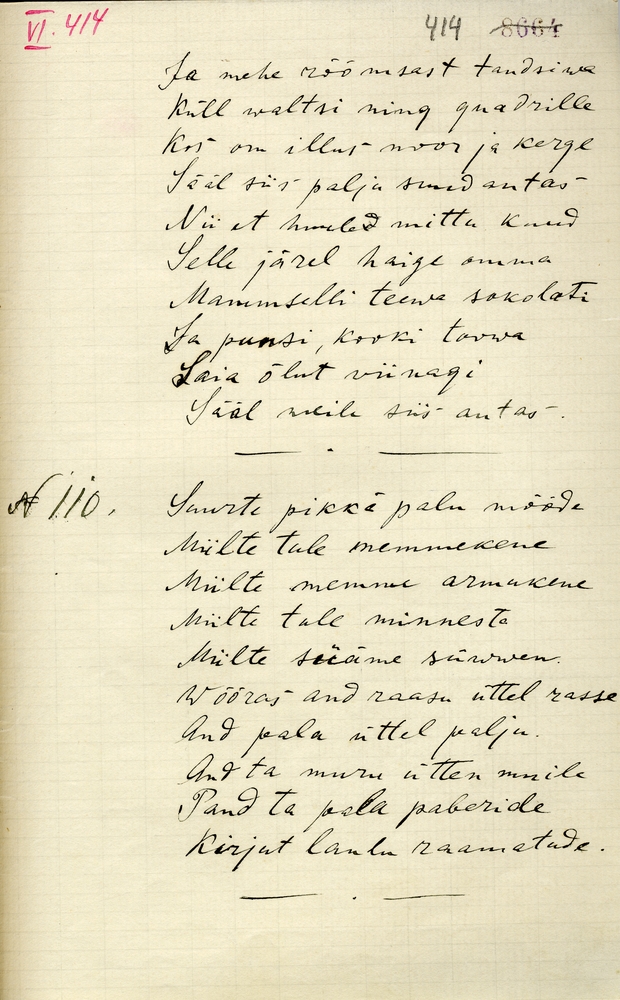 VI. 414
414 8664
Ja mehe rõõmsast tandsiwa
Küll waltsi ning quadrille
Kos om illus noor ja kerge
Sääl siis palju suud antas
Nii et huuled mitta kuud
Selle järel haige omma
Mammselli teewa sokolati
Ja punsi, kooki toowa
Saia õlut viinagi
Sääl meile siis antas.
N 110.
Suurte pikkä palu mööda
Miilte tule memmekene
Miilte memme armukene
Miilte tule minnesta
Miilte süäme süwwen.
Wõõras and raasu üttel rasse
And pala üttel palju.
And ta muru ütten muile
Pand ta pala paberide
Kirjut laulu raamatude.